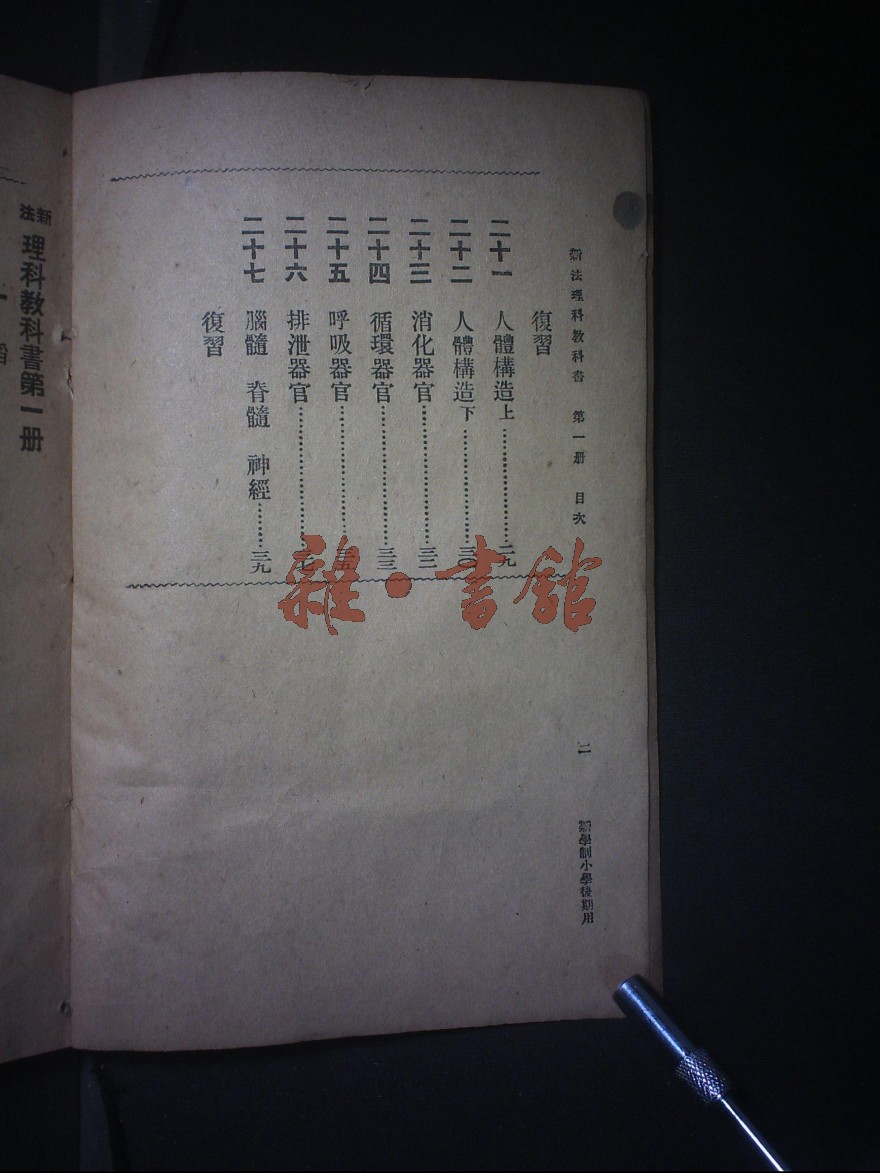 新法理科教科書 第一册 目次
二
新學制小學後期用
復習
二十一 人體構造上⋯⋯二九
二十二 人體構造下⋯⋯三〇
二十三 消化器官⋯⋯三二
二十四 循環器官⋯⋯三三
二十五 呼吸器官⋯⋯三五
二十六 排泄器官⋯⋯三七
二十七 腦髓 脊髓 神經⋯⋯三九
復習
新法理科教科書第一册
一
雜·書館